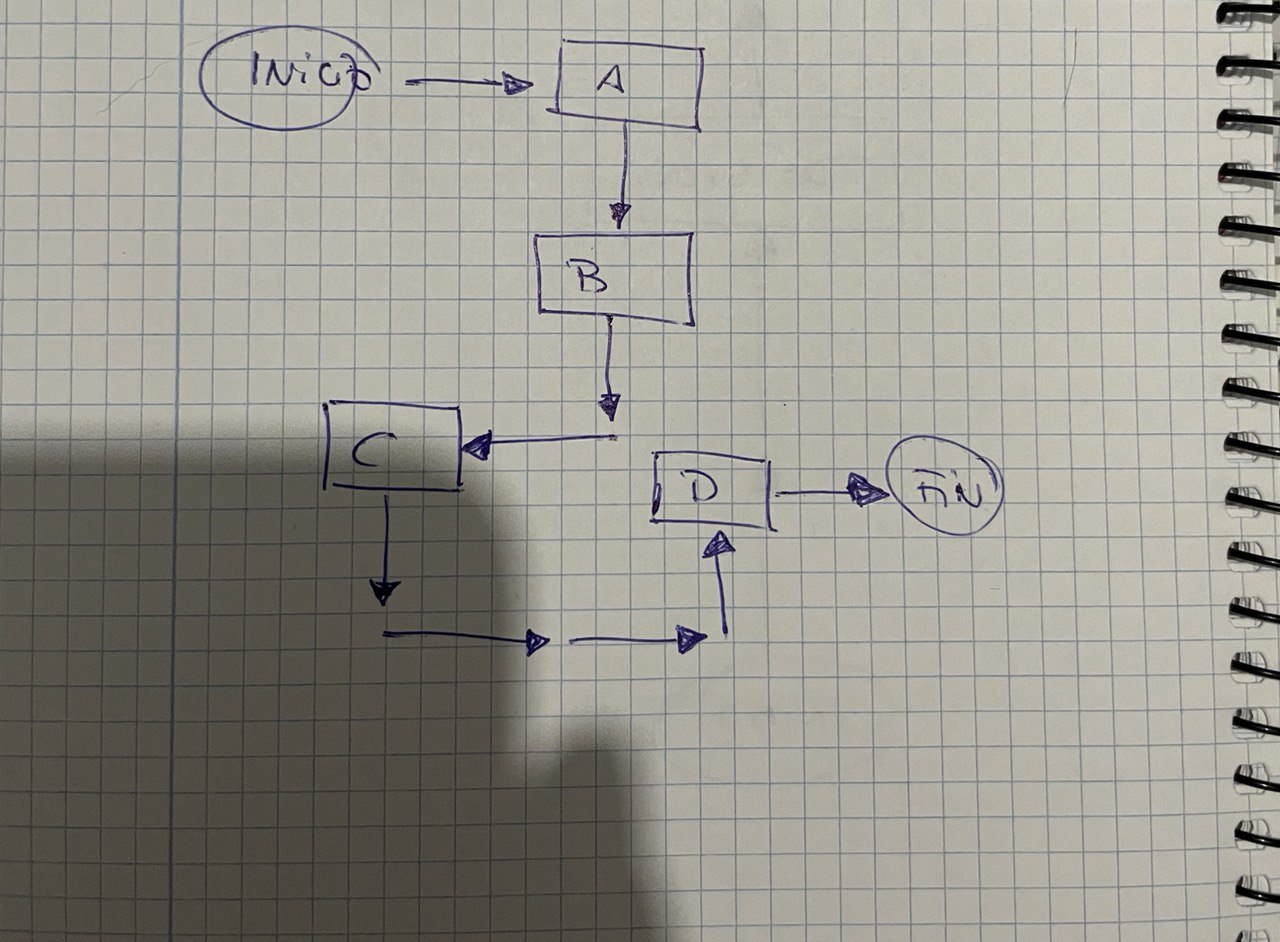 Inicio
A
B
C
D
Fin